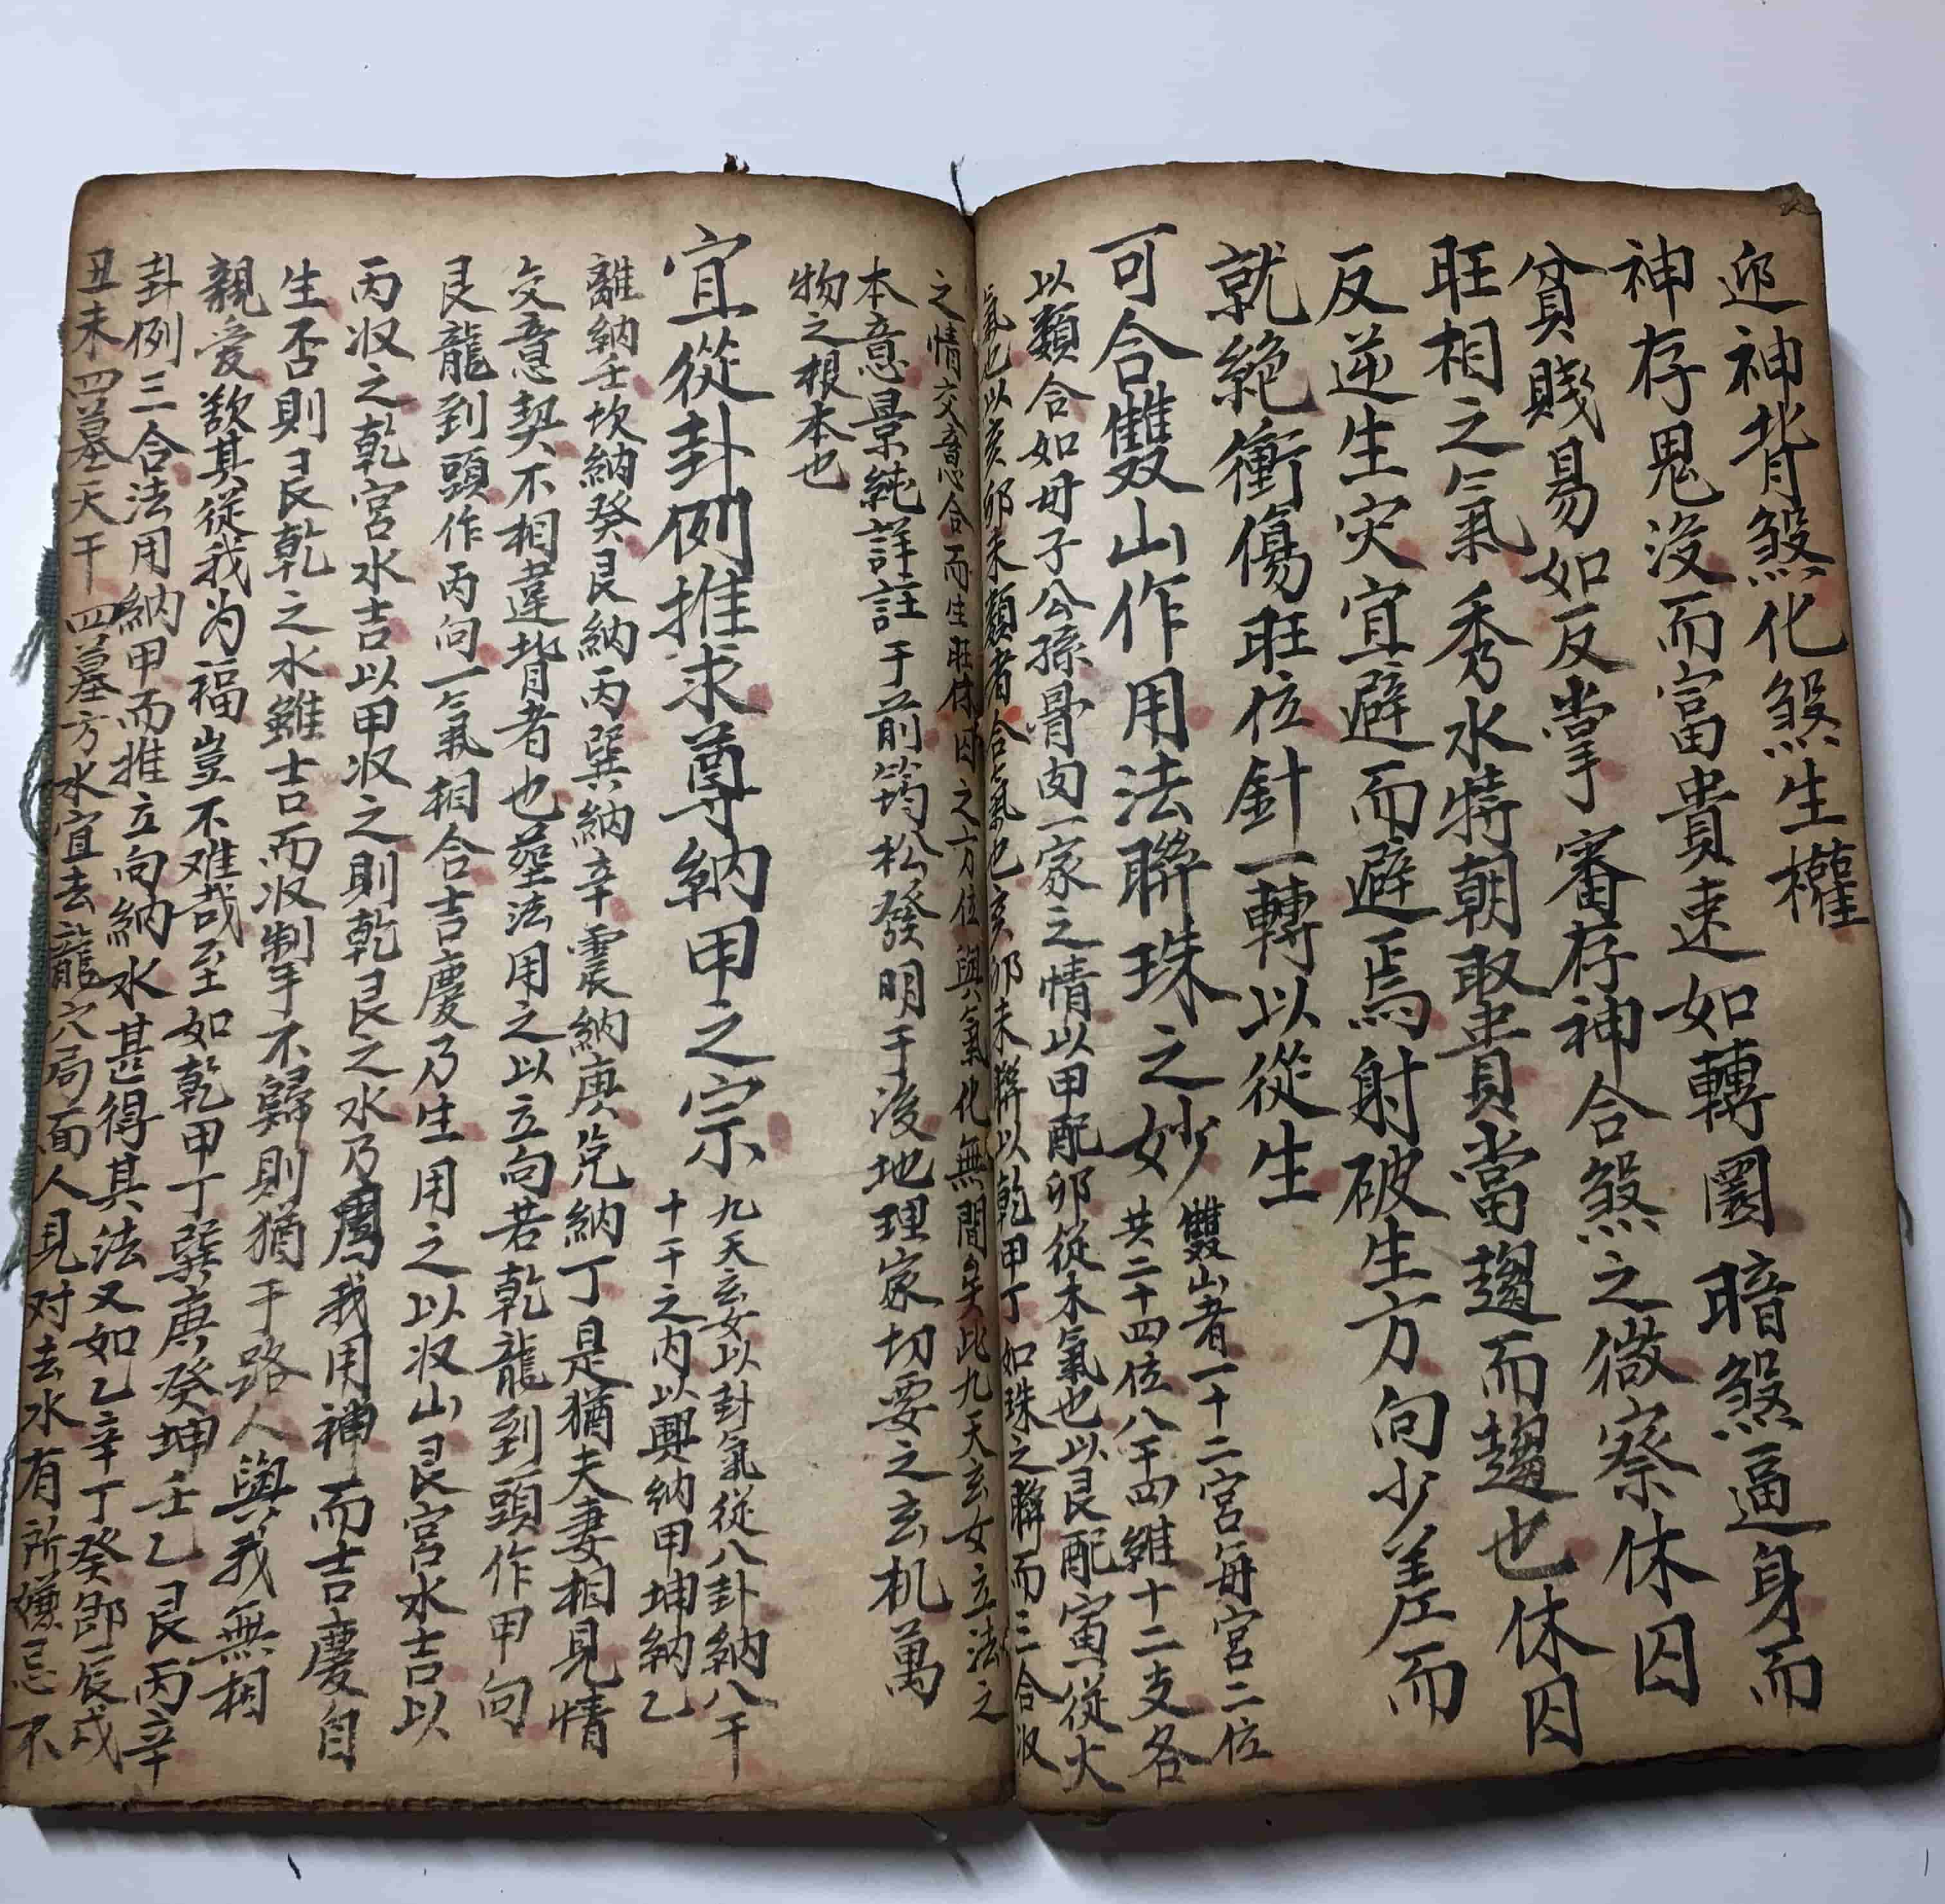 迎神背煞化煞生權
神存鬼沒而富貴速如轉圜暗煞逼身而
貧賤易如反掌審存神合煞之微察休囚
旺相之氣秀水特朝聚貴當趨而趨也休囚
反逆生灾宜避而避焉射破生方向少差而
就絶衝傷旺位針一轉以從生
可合雙山作用法聯珠之妙
雙山者一十二宮每宮二位
共二十四位八干四維十二支各
以類合如母子公孫骨肉一家之情以甲配卯從木氣也以艮配寅從火
氣也以亥卯未類者合氣也亥卯未聯以乾甲丁如珠之聯而三合収
之情交意合而生旺休囚之方位與氣化無間矣此九天玄女立法之
本意景純詳註于前筠松發明于後地理家切要之玄机萬
物之根本也
宜從卦例推求尊納甲之宗
九天玄女以卦氣從八卦納八干
十干之内以興納甲坤納乙
離納壬坎納癸艮納丙巽納辛震納庚兌納丁是猶夫妻相見情
交意契不相違背者也塟法用之以立向若乾龍到頭作甲向
艮龍到頭作丙向一氣相合吉慶乃生用之以収山艮宮水吉以
丙収之乾宮水吉以甲収之則乾艮之水乃爲我用神而吉慶自
生否則艮乾之水雖吉而収制不歸則猶于路人與我無相
親愛欲其從我为福豈不难哉至如乾甲丁巽庚癸坤壬乙艮丙辛
卦例三合法用納甲而推立向納水甚得其法又如乙辛丁癸即辰戌
丑未四墓天干四墓方水宜去龍穴局面人見对去水有所嫌忌不